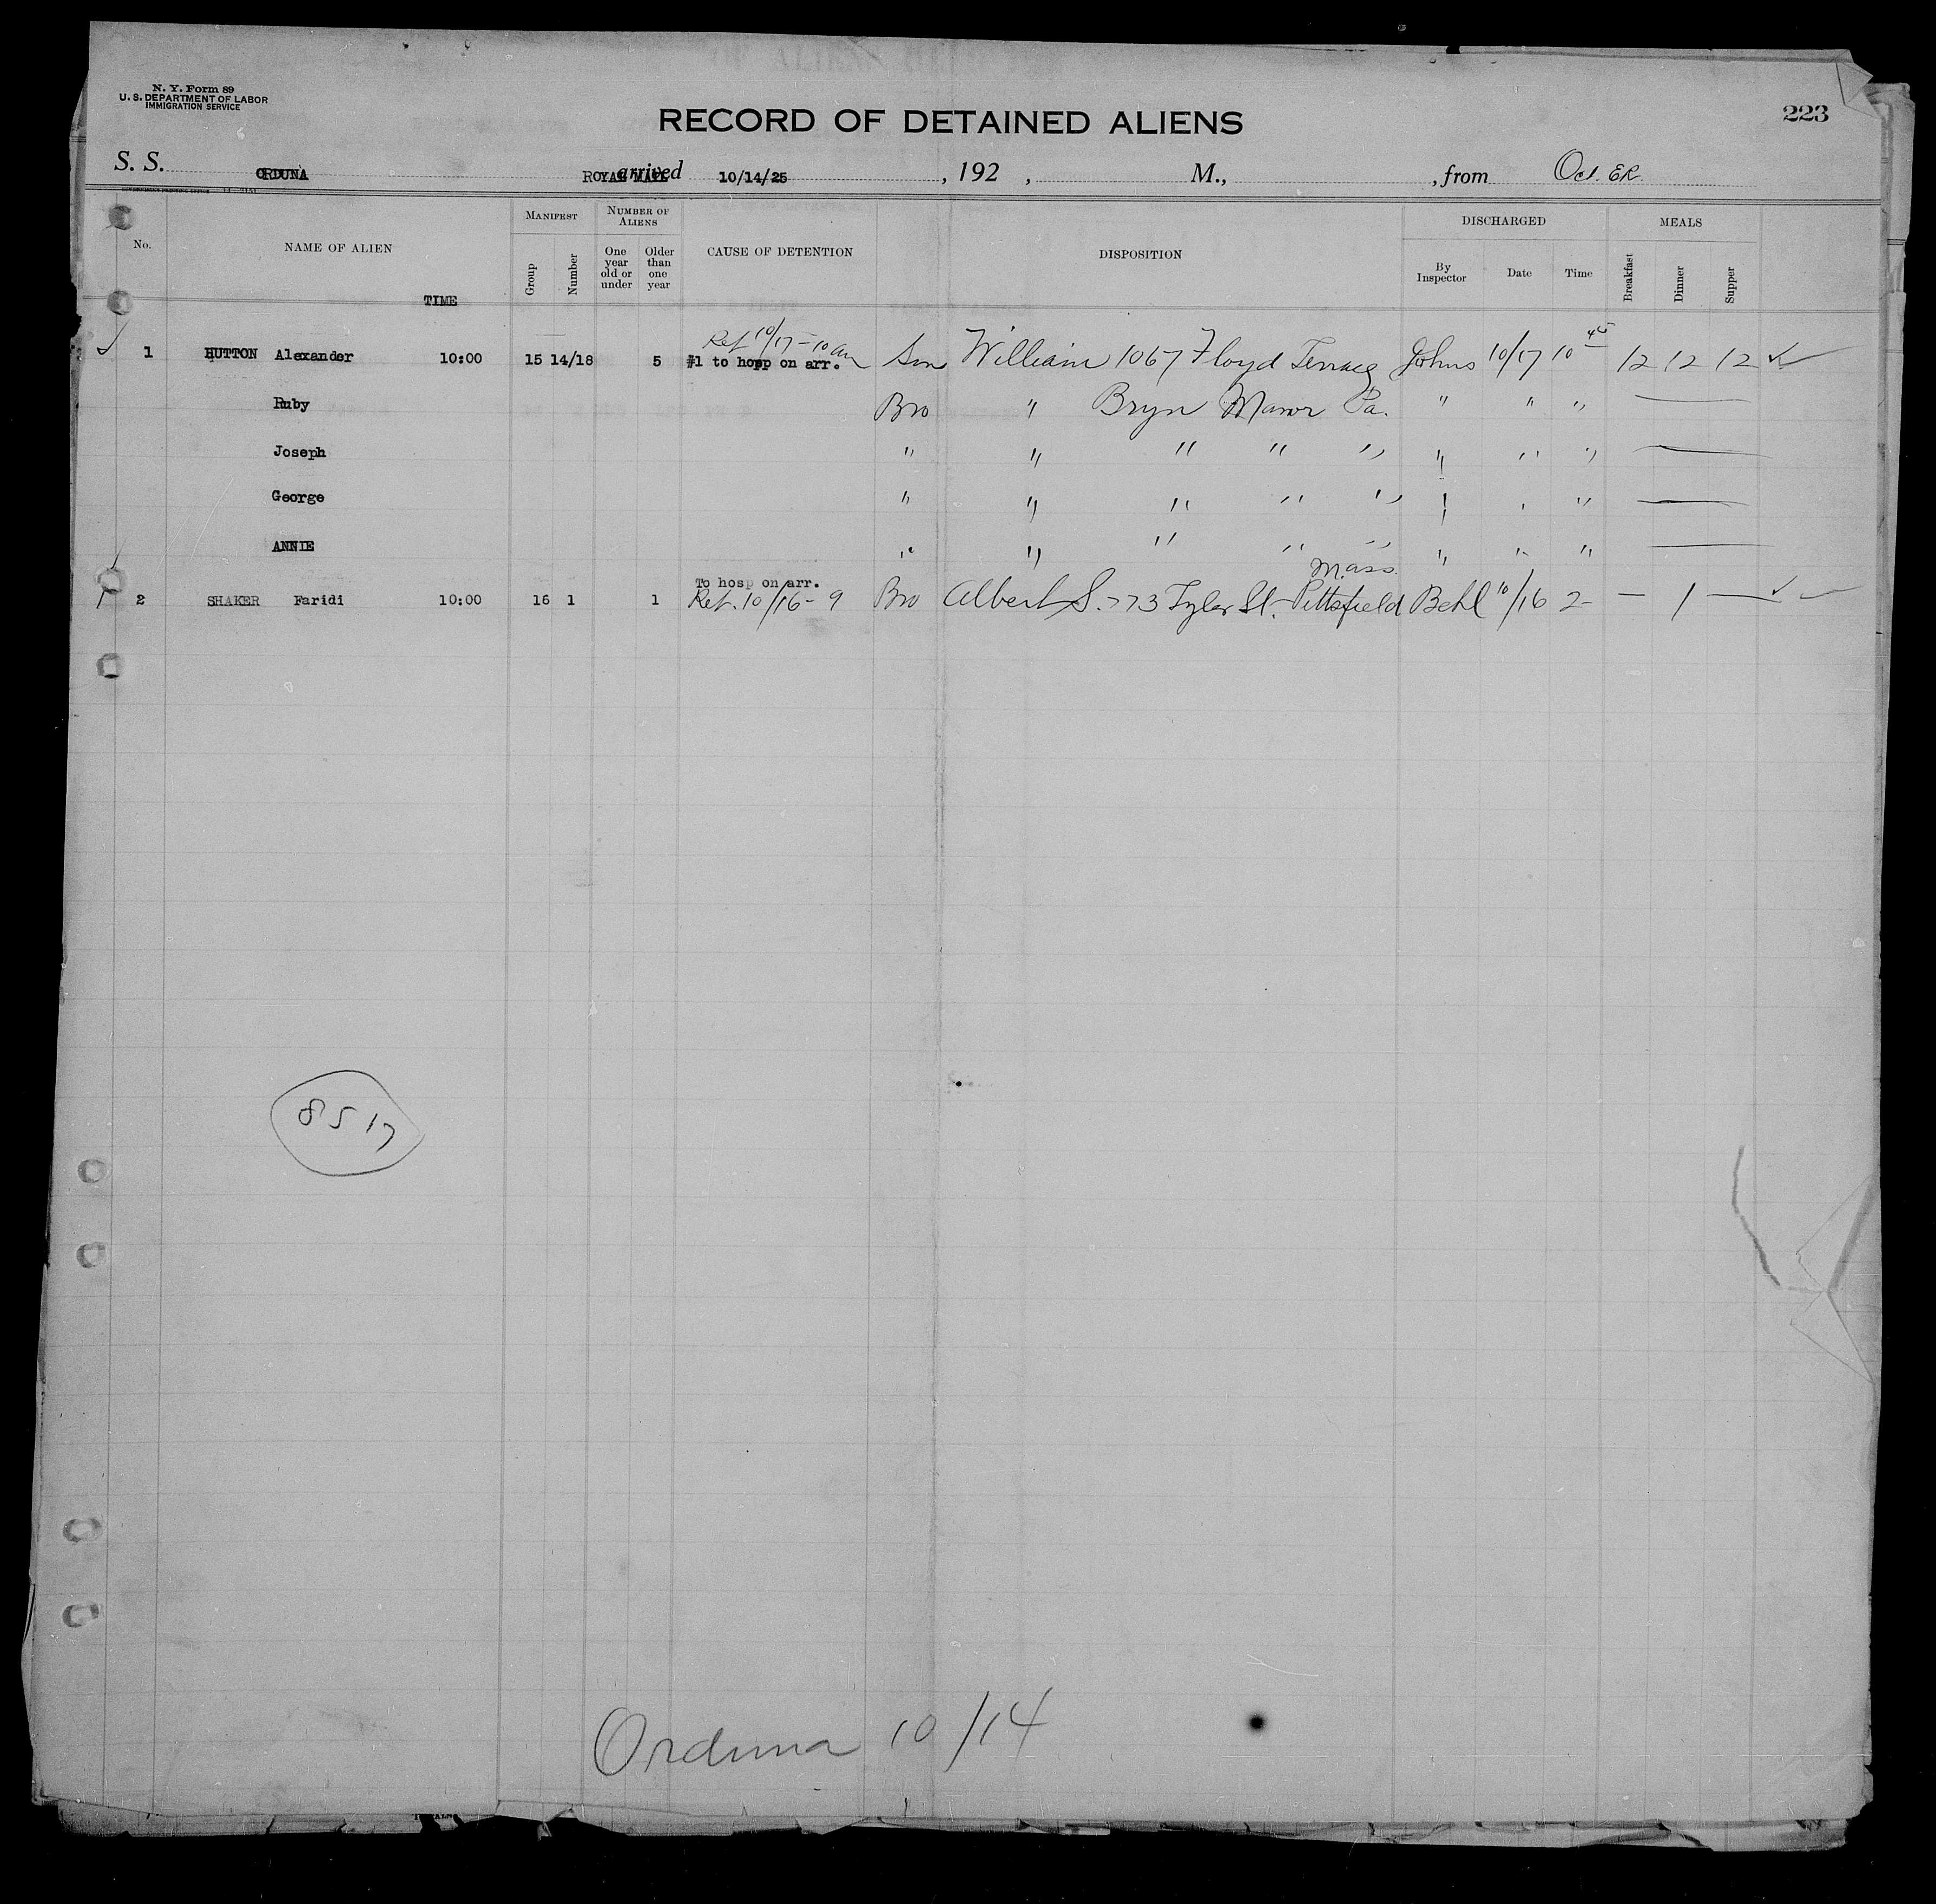 N. Y. Form 89
U. S. DEPARTMENT OF LABOR
IMMIGRATION SERVICE
RECORD OF DETAINED ALIENS
223
S. S. ORDUNA ROYAL MAIL arrived 10/14/25 , 192 , M., , from
GOVERNMENT PRINTING OFFICE
No. NAME OF ALIEN TIME MANIFEST Group Number NUMBER OF ALIENS One year old or under Older than one year CAUSE OF DETENTION DISPOSITION DISCHARGED By Inspector Date Time MEALS Breakfast Dinner Supper
Ref 10/17 - 10 am
1 HUTTON Alexander 10:00 15 14/18 5 #1 to hosp on arr. Son William 1067 Floyd Terrace Johns 10/17 10 45 12 12 12
Ruby Bro " Bryn Mawr Pa. " " "
Joseph " " " " " " " "
George " " " " " " " "
ANNIE " " " " " " " "
To hosp on arr. Mass.
2 SHAKER Faridi 10:00 16 1 1 Ref. 10/16 - 9 Bro Albert S. 773 Tyler St. Pittsfield Behl 10/16 2- — 1 —
8517
Orduna 10/14